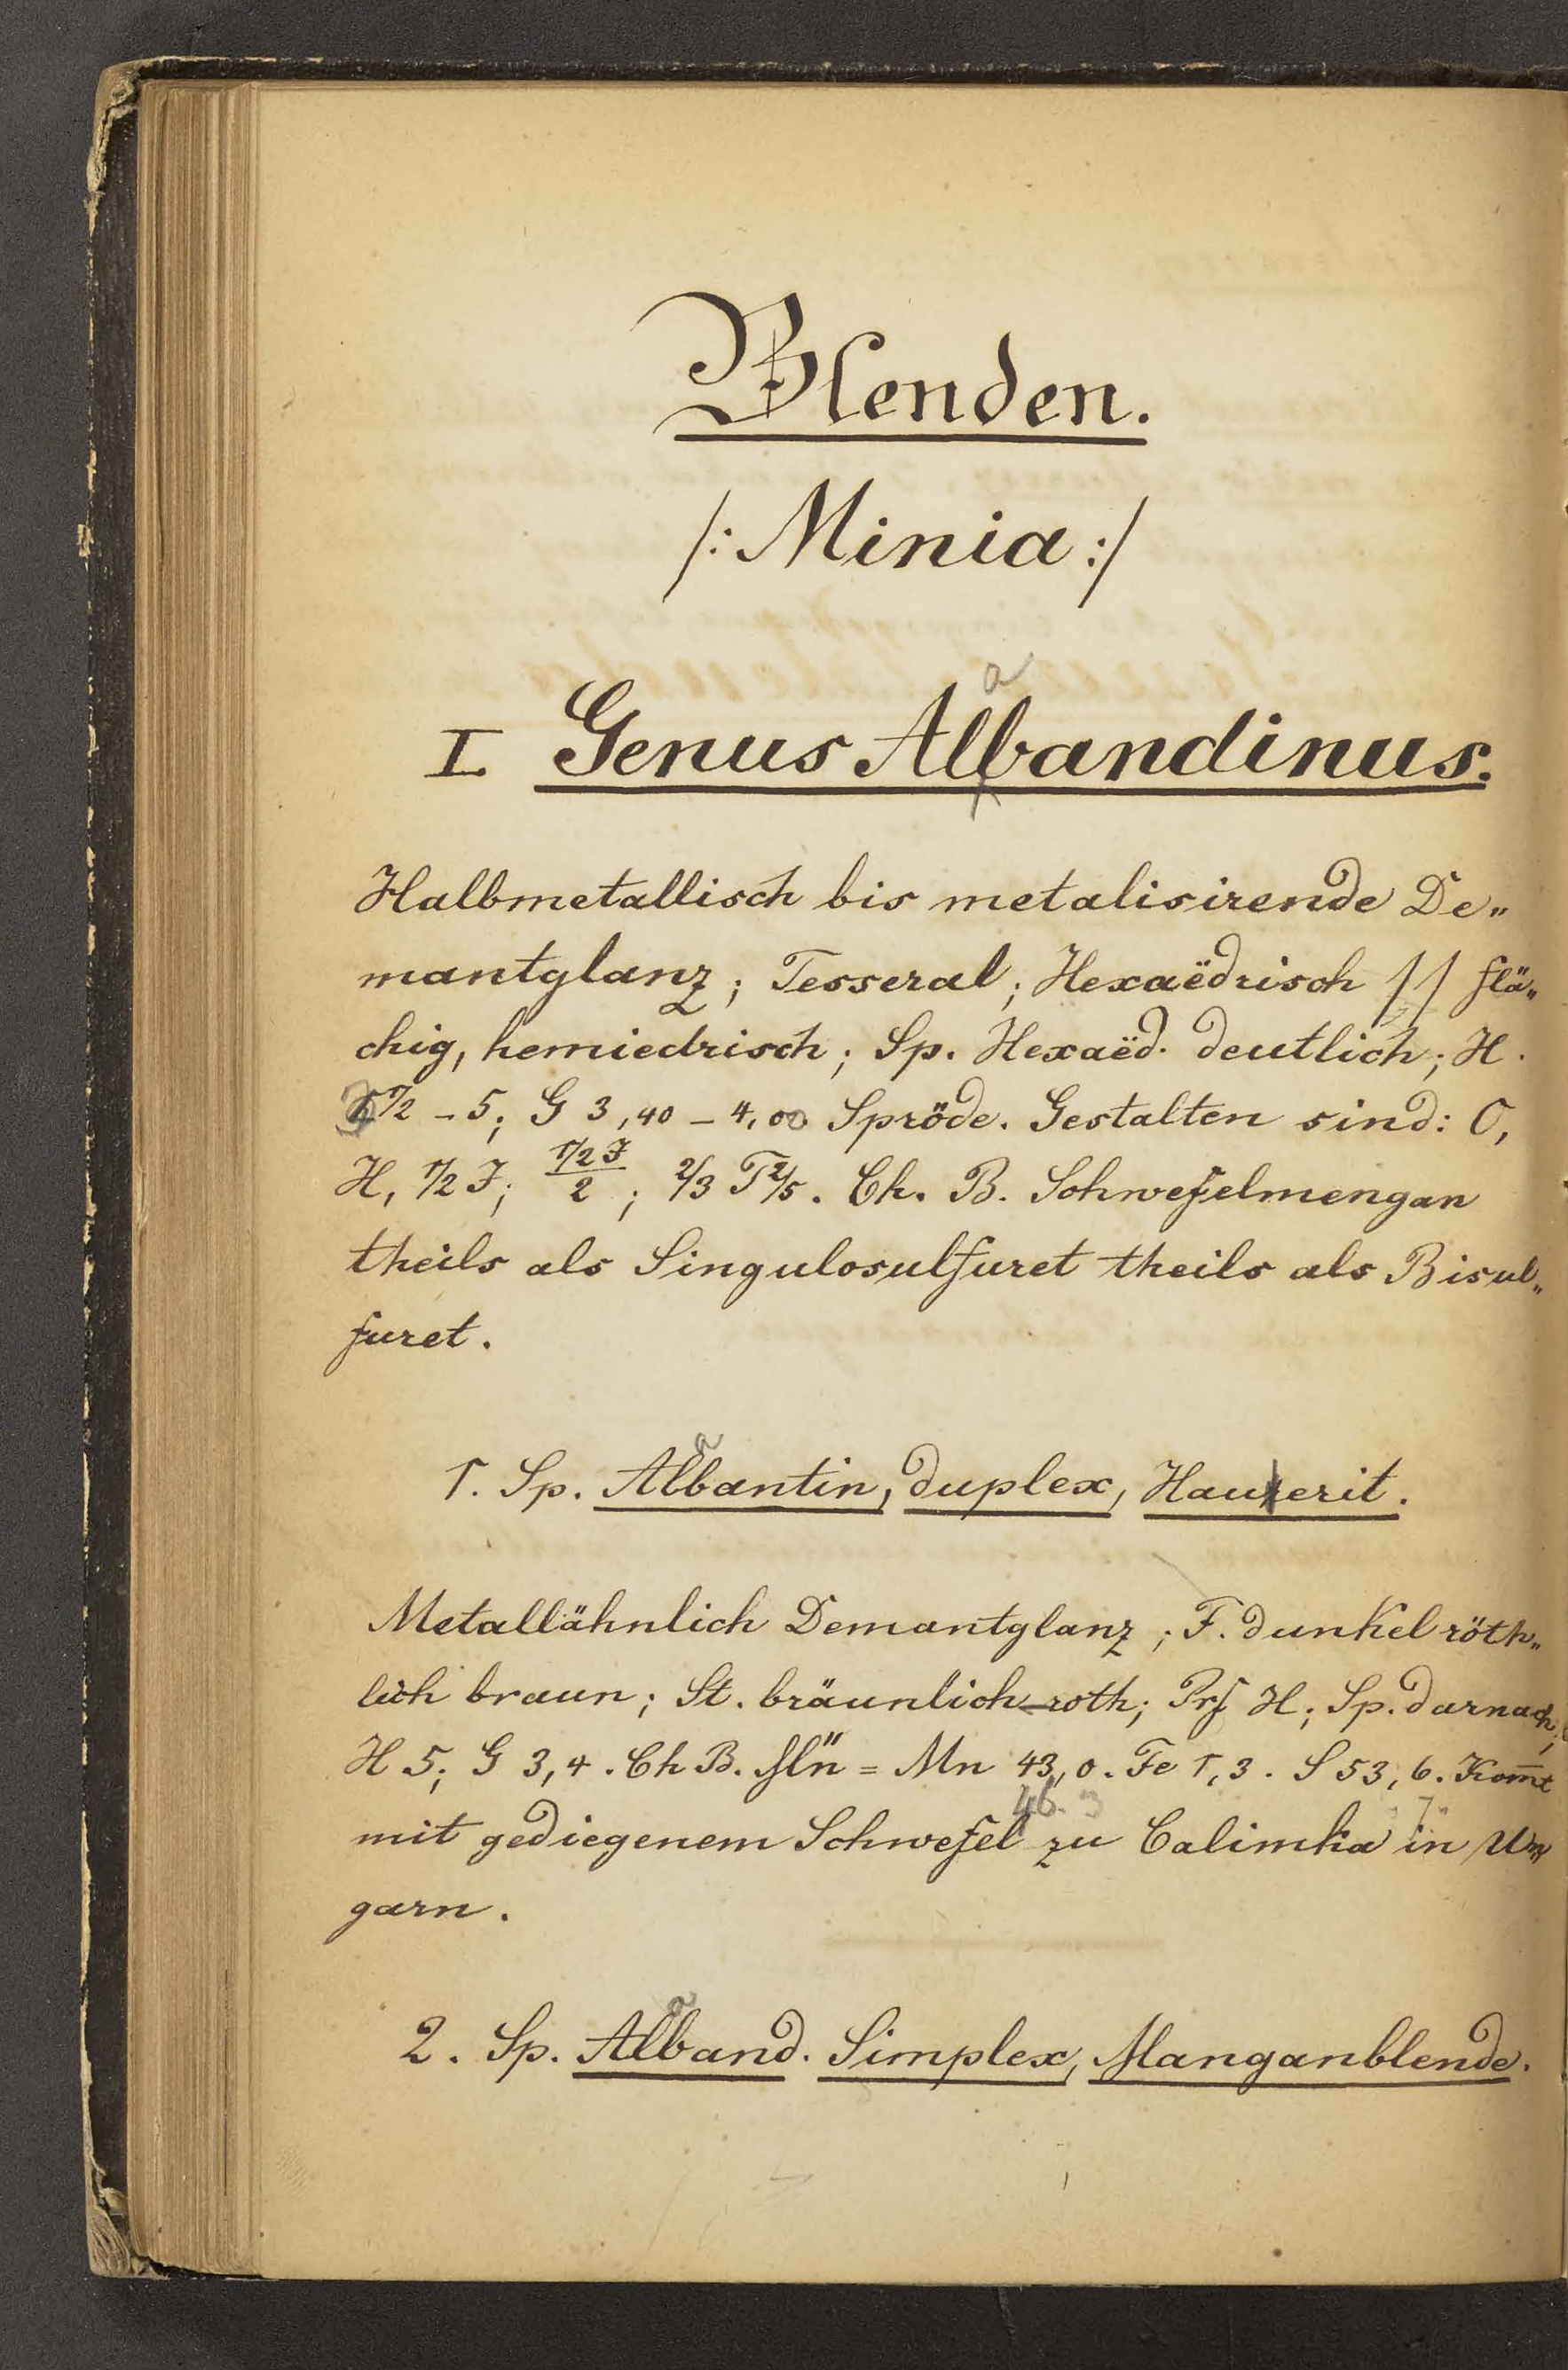 Blenden.
/: Minia :/
a
I Genus Albandinus.
Halbmetallisch bis metalisirende De„
mantglanz; Tesseral; Hexaëdrisch // flä„
chig, hemiedrisch; Sp. Hexaëd. deutlich; H.
3 1/2 – 5; G 3,40 – 4,00 Spröde. Gestalten sind: O,
H, 1/2 J; (1/2 J)/2; 2/3 T 2/5. Ch. B. Schwefelmengan
theils als Singulosulfuret theils als Bisul„
furet.
a
1. Sp. Albantin, duplex, Hauerit.
Metallähnlich Demantglanz; F. dunkel röth„
lich braun; St. bräunlich-roth; Prf H; Sp. darnach;
H 5; G 3,4. Ch B. M̈n = Mn 43,0. Fe 1,3. S 53,6. Kom̅t
46. 3 7
mit gediegenem Schwefel zu Calimka in Un„
garn.
a
2. Sp. Alband. Simplex, Manganblende.